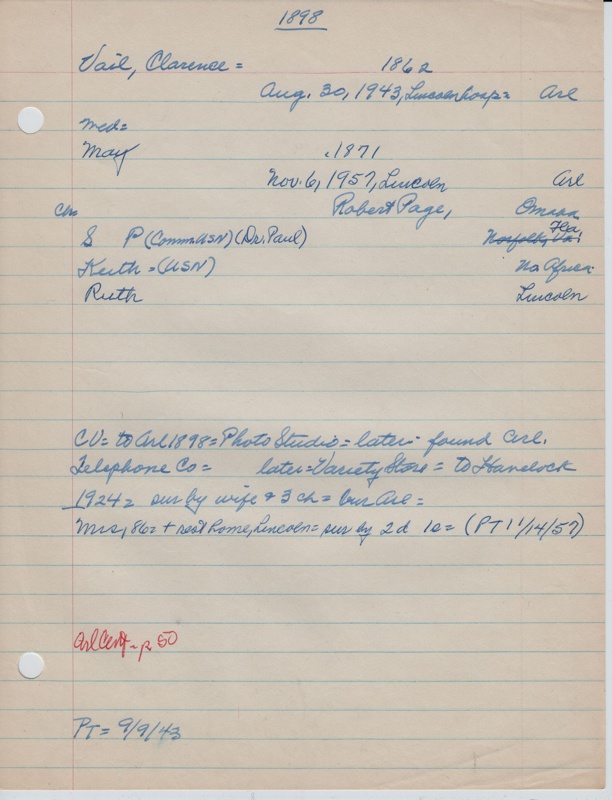 1898
Vail, Clarence = 1862
Aug. 30, 1943, Lincoln hosp = Arl
med=
May .1871
Nov. 6, 1957, Lincoln Arl
Robert Page, Omaha
Chn
S P (Comm. USN) (Dr. Paul) Norfolk, Va. Fla.
Keith = (USN) No Africa.
Ruth Lincoln
CV = to Arl 1898 = Photo Studio = later = found Arl.
Telephone Co = later = Variety Store = to Havelock
1924 = sur by wife & 3 ch = bur Arl =
Mrs, 86 = + rest home, Lincoln = sur by 2d 1s = (PT 11/14/57)
Arl Cem - p. 50
PT = 9/9/43